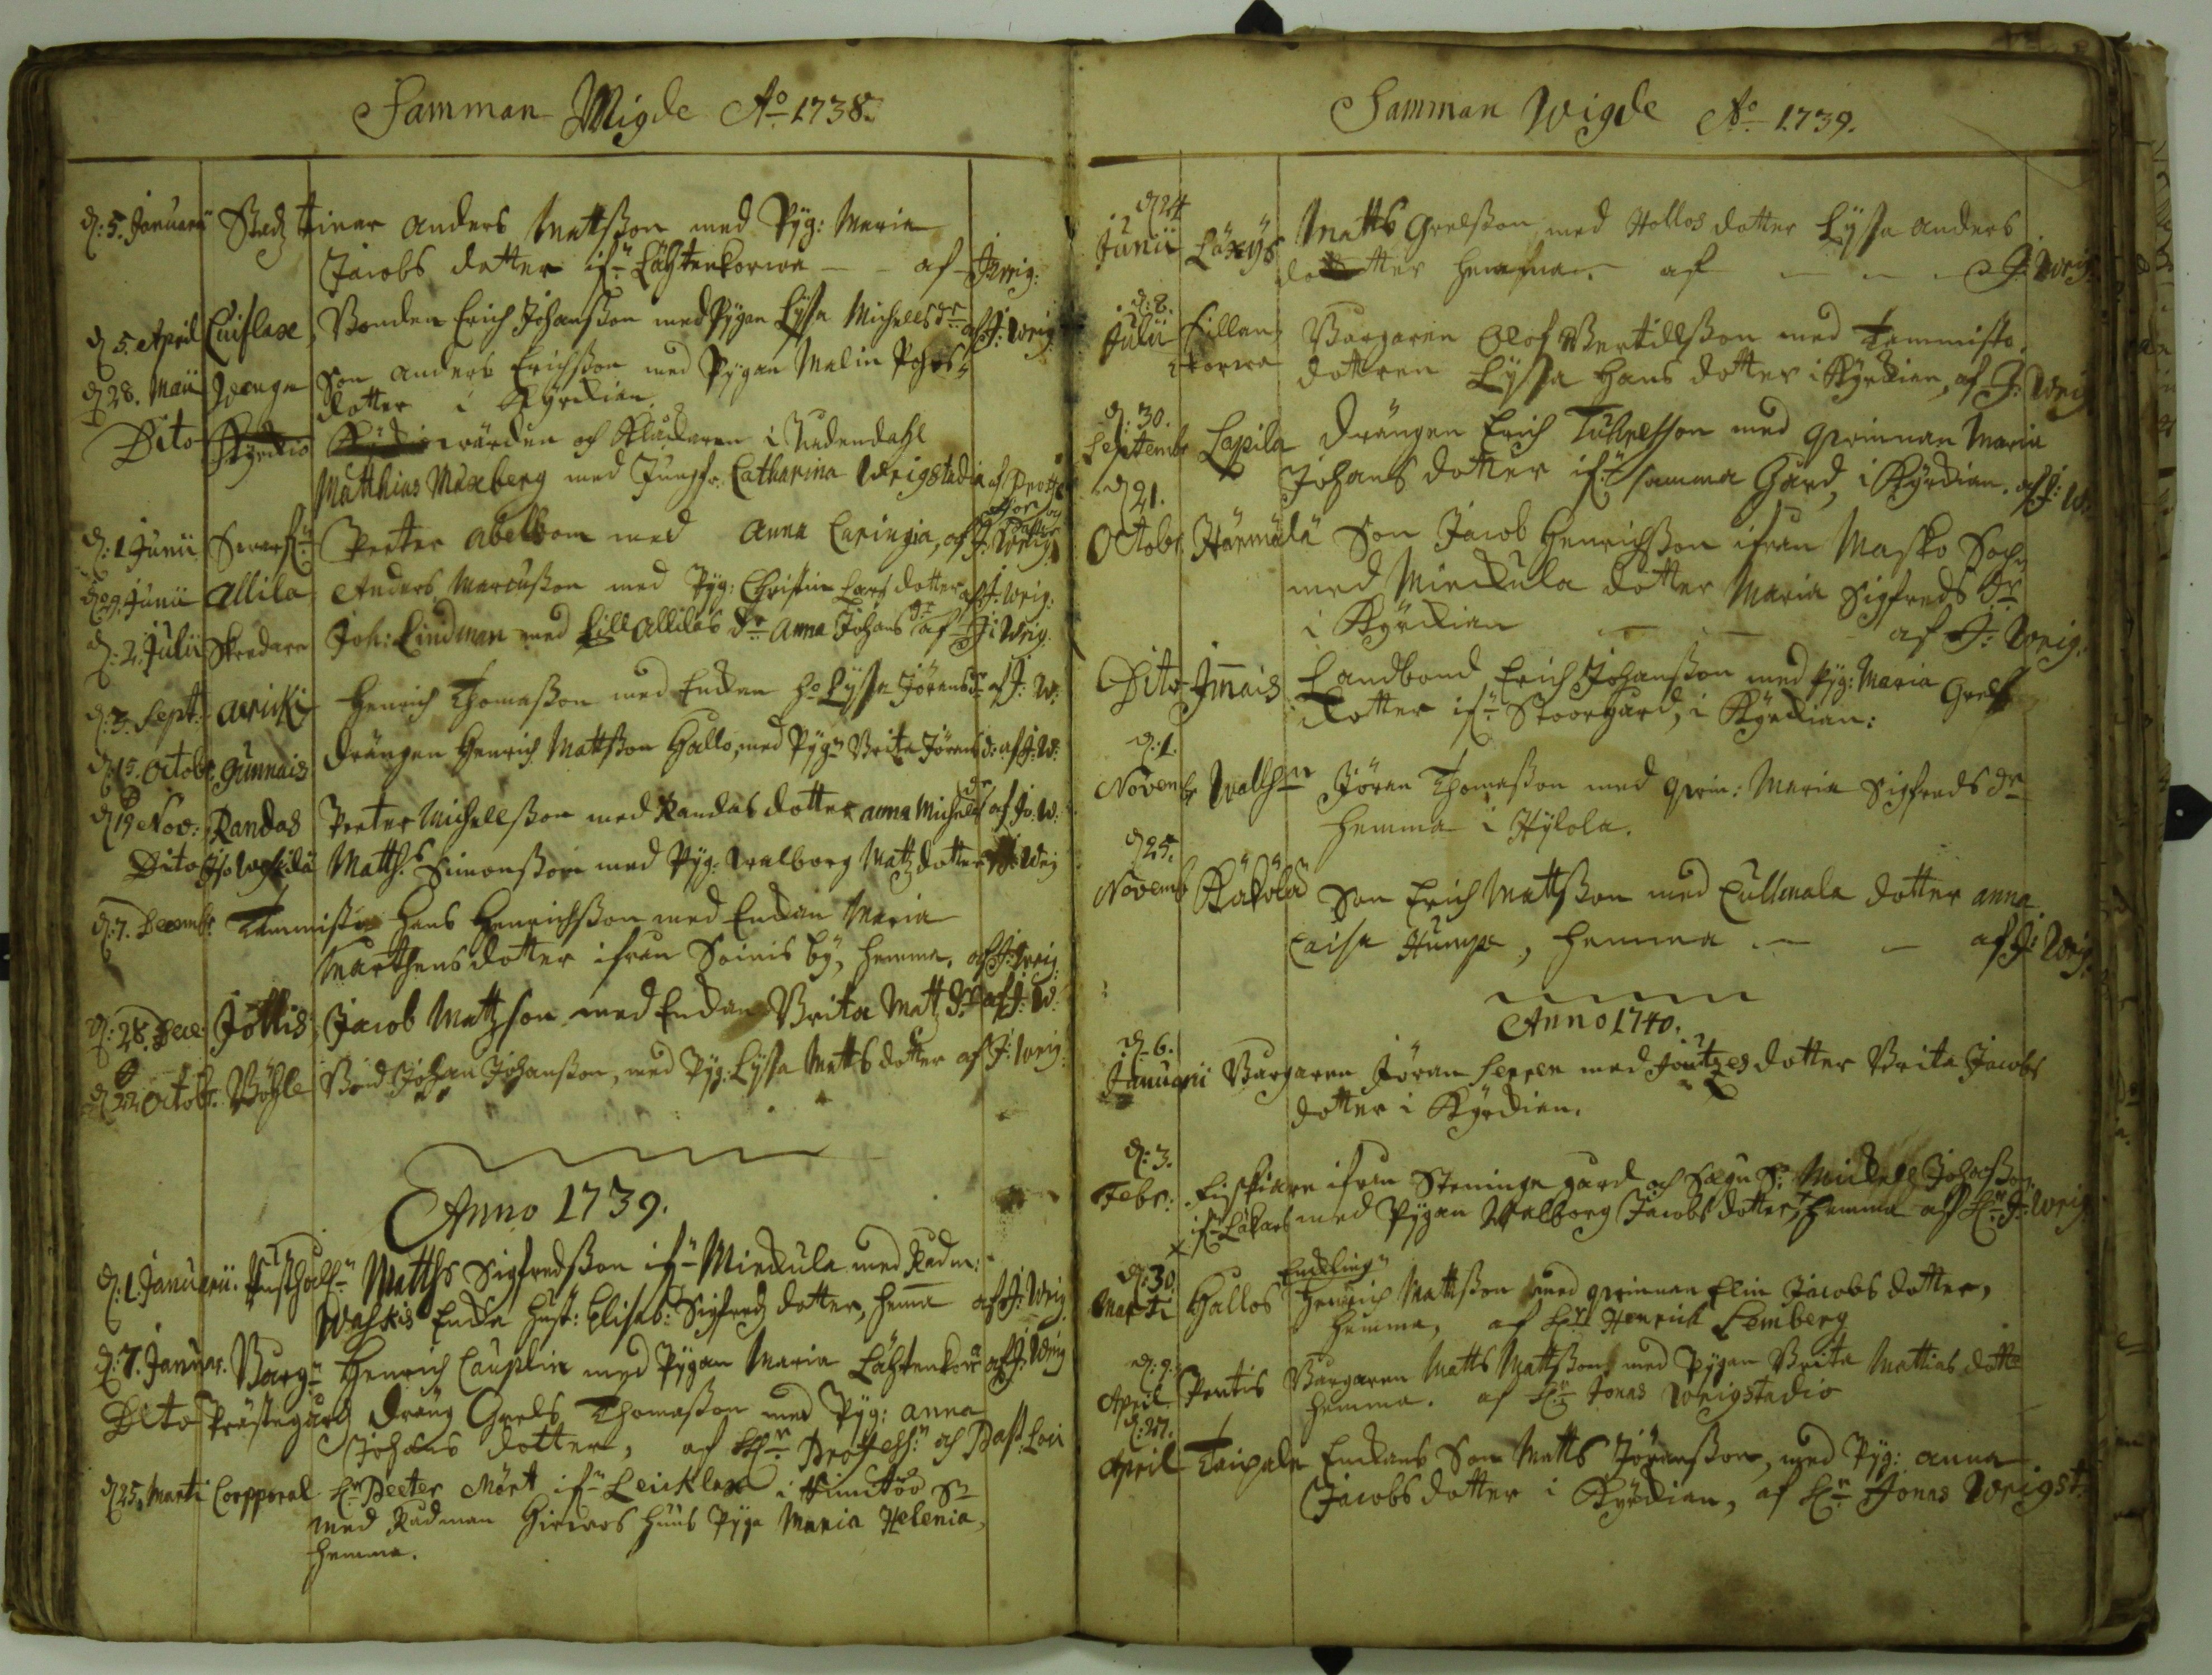 Samman Wigde Ao 1738.
d: 5. Januarii Stedz tienar Anders Mattsson med Pyg: Maria
Jacobs dotter ifn Lähtenkorwa - - af J: Wrig:
d 5. April Cuiflaxe, Bonden Erich Johansson med Pygan Lyssa Michells dr af J: Wrig:
d 28. Maii Son Anders Erichsson med Pygan Malin
dotter i Kyrkian.
Dito wärden och Klåckaren i Nådendahl
Matthias Maxberg med Jungfr. Catharina Wrigstadia af
d: 1 Junii Peeter Abelson med Anna Caringia, af J: Wrig:
d 9. Junii Allila Anders Marcusson med Pyg: Christin Lars dotter af J: Wrig:
d: 2. Julii Skredare Joh: Lindman med Lill Allilas dr Anna Johans dr af J: Wrig.
d: 3. Sept: Henrich Thomasson med Enkan Ho Lyssa Jörans dr af J: W:
d 15. Octobr. Gunnais drängen Henrich Mattsson Hallo, med Pygn Brita Jörans d: af J: W:
d 19 Nov: Randas Peeter Michellsson med Randas dotter Anna Michels dr af Jo: W.
Dito Matths Simonsson med Pyg: Walborg Matz dotter af J: Wrig
d: 7. Decembr. Tammisto Hans Henrichsson med Enkan Maria
Marthens dotter ifrån Soinis by, hemma, af J: Wrig:
d: 28. Dec: Jöllis, Jacob Matzson med Enkan Brita Matz dr af J: W:
d 22 Octobr. Böhle Bond Johan Johansson, med Pyg: Lyssa Matts dotter af J: Wrig:
Anno 1739.
d. 1. Januarii. Matths Sigfredsson ifn Mickula med Radm:
Waskis Enka Hust: Elisab: Sigfredz dotter, hema af J: Wrig
d: 7. Januar. Borgn Henrich Cauplin med Pygan Maria Lähtenkorw af J: Wrig
Dito Prästegård dräng Grels Thomasson med Pyg: Anna
Johans dotter, af Hr Professn och Past: Loci
d 25. Marti Corpporal Hr Peeter Mört ifn Leiklax i Kimitoo Sn
med Radman Girwos huus Pyga Maria Helenia,
hemma.
Samman Wigde Ao 1739.
d 24
Junii Matts Grelsson med Hollos dotter Lyssa Anders
dotter hemma. af - - - J: Wrig.
d: 8.
Julii Lillans
korwa Borgaren Olof Bertillsson med Tammisto
dottren Lyssa Hans dotter i Kyrkian, af J: Wrig
d: 30.
Septembr Lapila drängen Erich med qwinnan Maria
Johans dotter ifn samma Gård, i Kyrkian. af J: W.
d 21.
Octobr. Härmälä Son Jacob Henrichsson ifrån Masko Sochn
med Mickula dotter Maria Sigfreds dr
i Kyrkian - - af J: Wrig.
Dito Imais Landbond Erich Johansson med Pyg: Maria Grels
dotter ifn Stoorgård, i Kyrkian:
d: 1.
Novembr Jöran Thomasson med qwin: Maria Sigfreds dr
hemma i Hylola.
d 25.
Novemb Käkölä Son Erich Mattsson med Cullmala dotter Anna
Caisa Humpe, hemma - - af J: Wrig.
Anno 1740.
d. 6.
Januarii Borgaren Jöran Seppen med Joutzes dotter Brita Jacobs
dotter i Kyrkian.
d: 3.
Febr: ifrån Steninge gård och Sagu S: Mickell Johansson
med Pygan Walborg Jacobs dotter, hemma af Hr J: Wrig
d: 30
Marti Hallos Enkling
Henrich Mattsson med qwinnan Elin Jacobs dotter,
hemma, af Hr Henrich Lemberg
d: 9.
April Pertis Borgaren Matts Mattsson med Pygan Brita Mattias dotte
hemma. af Hr Jonas Wrigstadio
d: 27.
April Taipale Enkans Son Matts Jöransson, med Pyg: Anna
Jacobs dotter i Kyrkian, af Hr Jonas Wrigst: